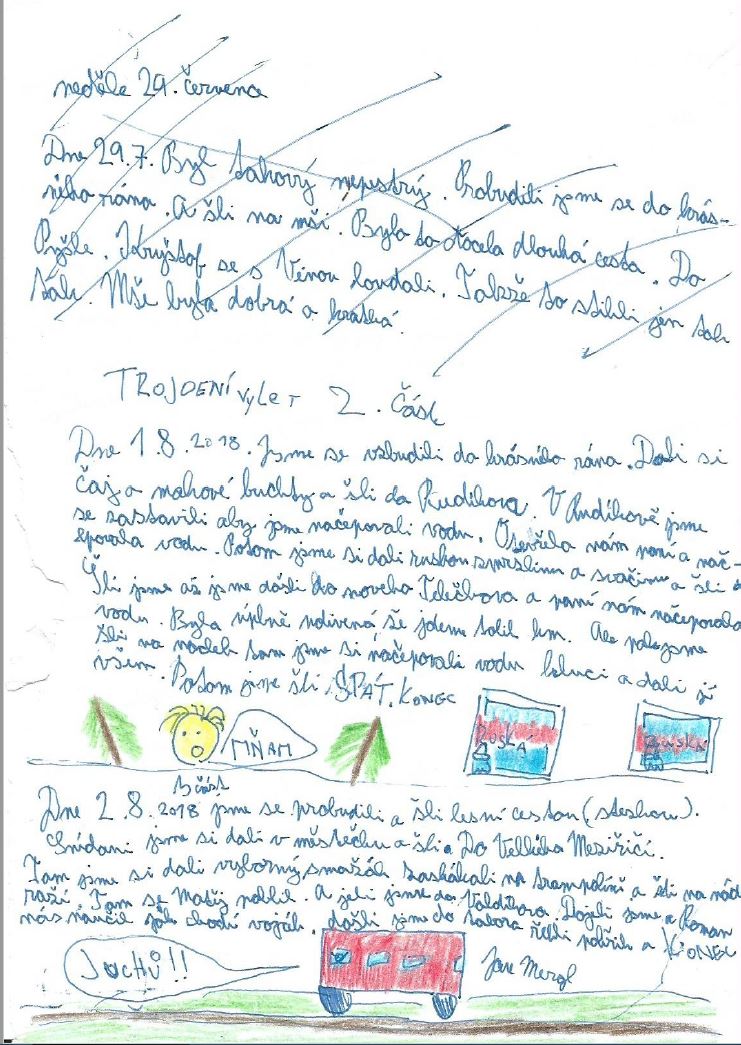 neděle 29. července
Dne 29.7. Byl takový nepestrý. Probudili jsme se do krás-
ného rána. A šli na mši. Bylo to docela dlouhá cesta. Do
Pyšle. Kryštof se s Vénou loudali. Takže to stihli jen tak
tak. Mše byla dobrá a kratká.
TROJDENÍ vyLeT 2. část
Dne 1.8.2018. Jsme se vzbudili do krásného rána. Dali si
čaj a makové buchty a šli do Rudíkova. V Rudíkově jsme
se zastavili aby jsme načepovali vodu. Otevřela nám paní a nač-
epovala vodu. Potom jsme si dali ruskou zmrzlinu a svačinu a šli
Šli jsme až jsme došli do noveho Telečkova a paní nám načepovala
vodu. Byla úplně udivená, že jdem tolik km. Ale pak jsme
šli na tam jsme si načepovali vodu kluci a dali ji
všem. Potom jsme šli SPÁT. KONEC
MŇAM
RUSKÁ
RUSKÁ
3 část
Dne 2.8.2018 jsme se probudili a šli lesní cestou (steskou).
Snídani jsme si dali v městečku a šli. Do Velkého Meziříčí.
Tam jsme si dali vyborný smažák zaskákali na trampolíně a šli na nád
raží. Tam se Matěj a jeli jsme do Valdíkova. Dojeli jsme a Roman
nás naučil jak chodí voják. došli jsme do tabora řekli pokřik a KONEC
JUCHŮ!!
Jan Mergl